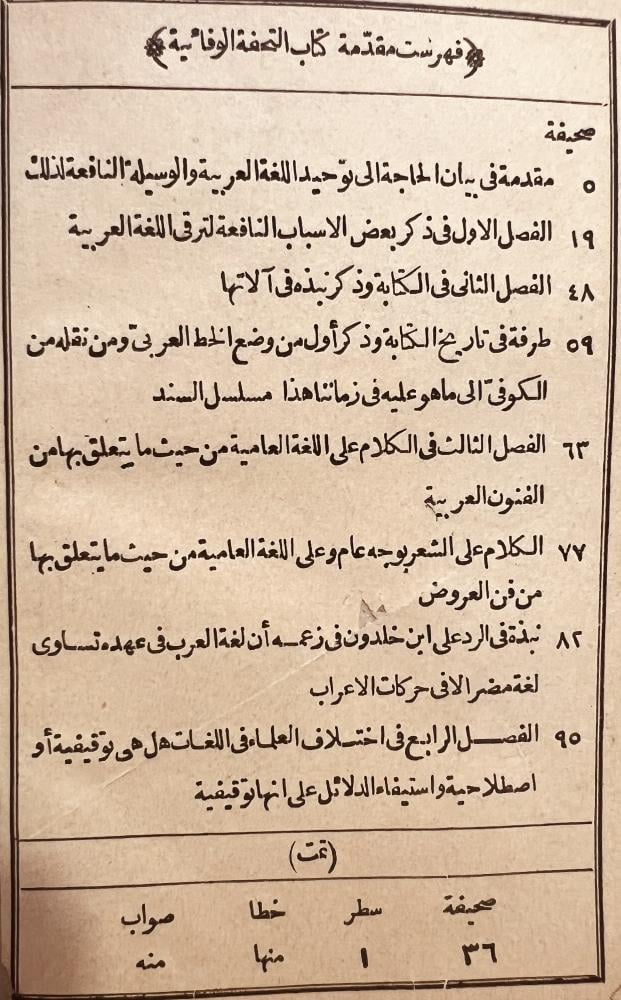 ﴿ فهرست مقدّمة كتاب التحفة الوفائية ﴾
صحيفة
٥ مقدمة فى بيان الحاجة الى توحيد اللغة العربية والوسيلة النافعة لذلك
١٩ الفصل الاول فى ذكر بعض الاسباب النافعة لترقى اللغة العربية
٤٨ الفصل الثانى فى الكتابة وذكر نبذه فى آلاتها
٥٩ طرفة فى تاريخ الكتابة وذكر أول من وضع الخط العربىّ ومن نقله من
الكوفىّ الى ما هو عليه فى زماننا هذا مسلسل السند
٦٣ الفصل الثالث فى الكلام على اللغة العامية من حيث ما يتعلق بها من
الفنون العربية
٧٧ الكلام على الشعر بوجه عام وعلى اللغة العامية من حيث ما يتعلق بها
من فن العروض
٨٢ نبذة فى الرد على ابن خلدون فى زعمه أن لغة العرب فى عهده تساوى
لغة مضر الا فى حركات الاعراب
٩٥ الفصل الرابع فى اختلاف العلماء فى اللغات هل هى توقيفية أو
اصطلاحية واستيفاء الدلائل على انها توقيفية
(تمت)
صحيفة سطر خطا صواب
٣٦ ١ منها منه